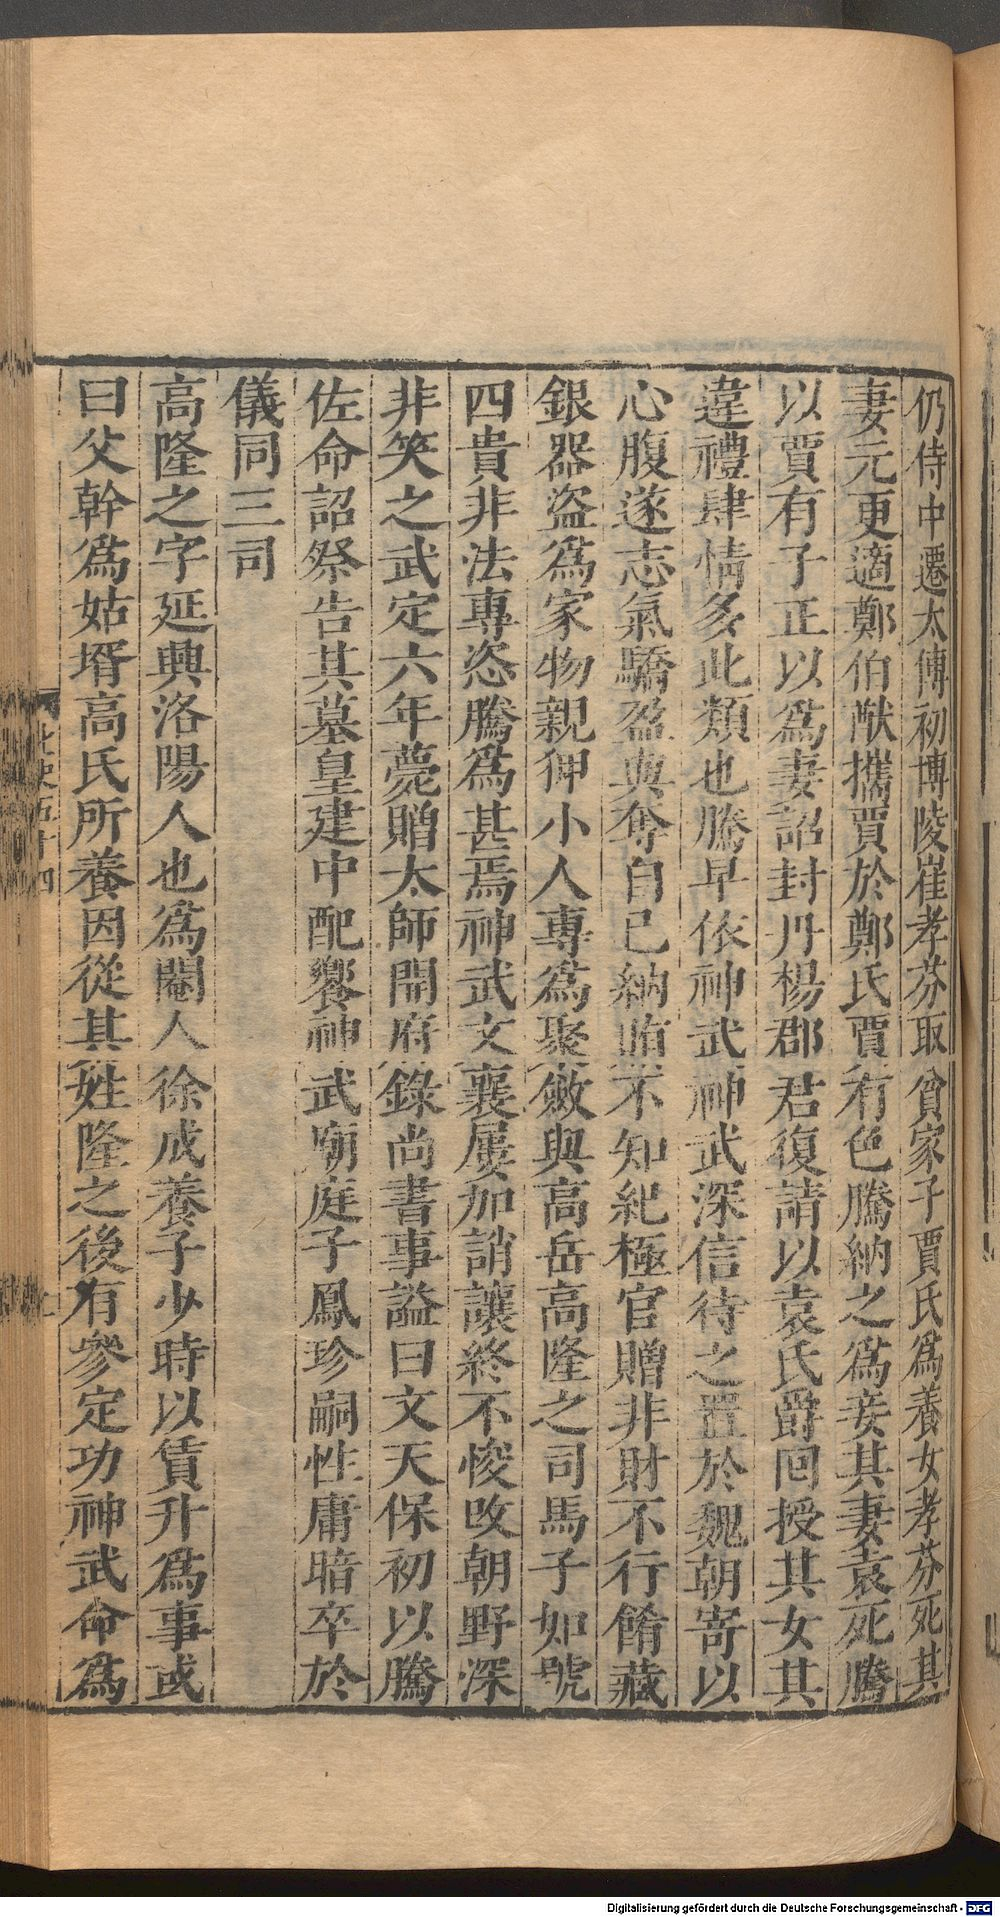 仍侍中遷太傅初博陵崔孝芬取貧家子賈氏爲養女孝芬死其
妻元更適鄭伯猷攜賈於鄭氏賈有色騰納之爲妾其妻袁死騰
以賈有子正以爲妻詔封丹楊郡君復請以袁氏爵回授其女其
違禮肆情多此類也騰早依神武神武深信待之置於魏朝寄以
心腹遂志氣驕盈與奪自己納賄不知紀極官贈非財不行餚藏
銀器盜爲家物親狎小人專爲聚斂與高岳高隆之司馬子如號
四貴非法專恣騰爲甚焉神武文襄屢加誚讓終不悛改朝野深
非笑之武定六年薨贈太師開府錄尚書事諡曰文天保初以騰
佐命詔祭告其墓皇建中配饗神武廟庭子鳳珍嗣性庸暗卒於
儀同三司
高隆之字延興洛陽人也爲閹人徐成養子少時以賃升爲事或
曰父幹爲姑壻高氏所養因從其姓隆之後有參定功神武命爲
北史五十四
Digitalisierung gefördert durch die Deutsche Forschungsgemeinschaft - DFG